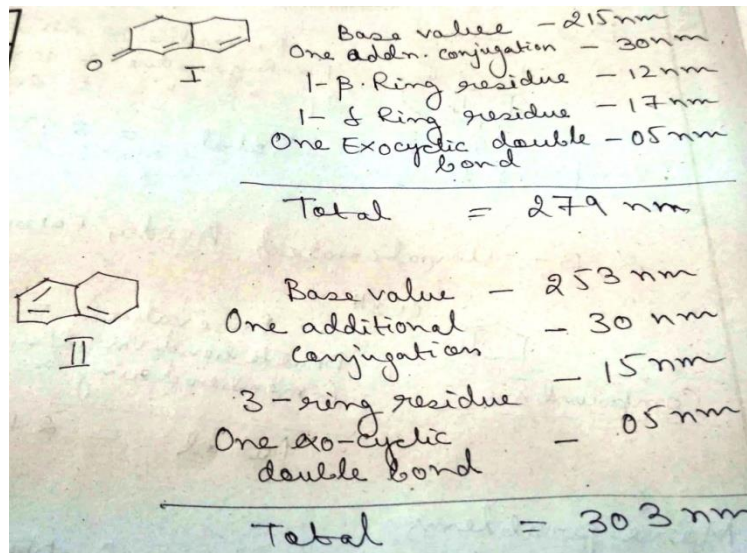 Base value - 215nm
One addn. conjugation - 30nm
O
I
1-β. Ring residue - 12nm
1- δ Ring residue - 17nm
One Exocyclic double - 05nm
bond
Total = 279 nm
Base value - 253 nm
One additional - 30 nm
conjugation
II
3-ring residue - 15nm
One exo-cyclic - 05nm
double bond
Total = 303 nm